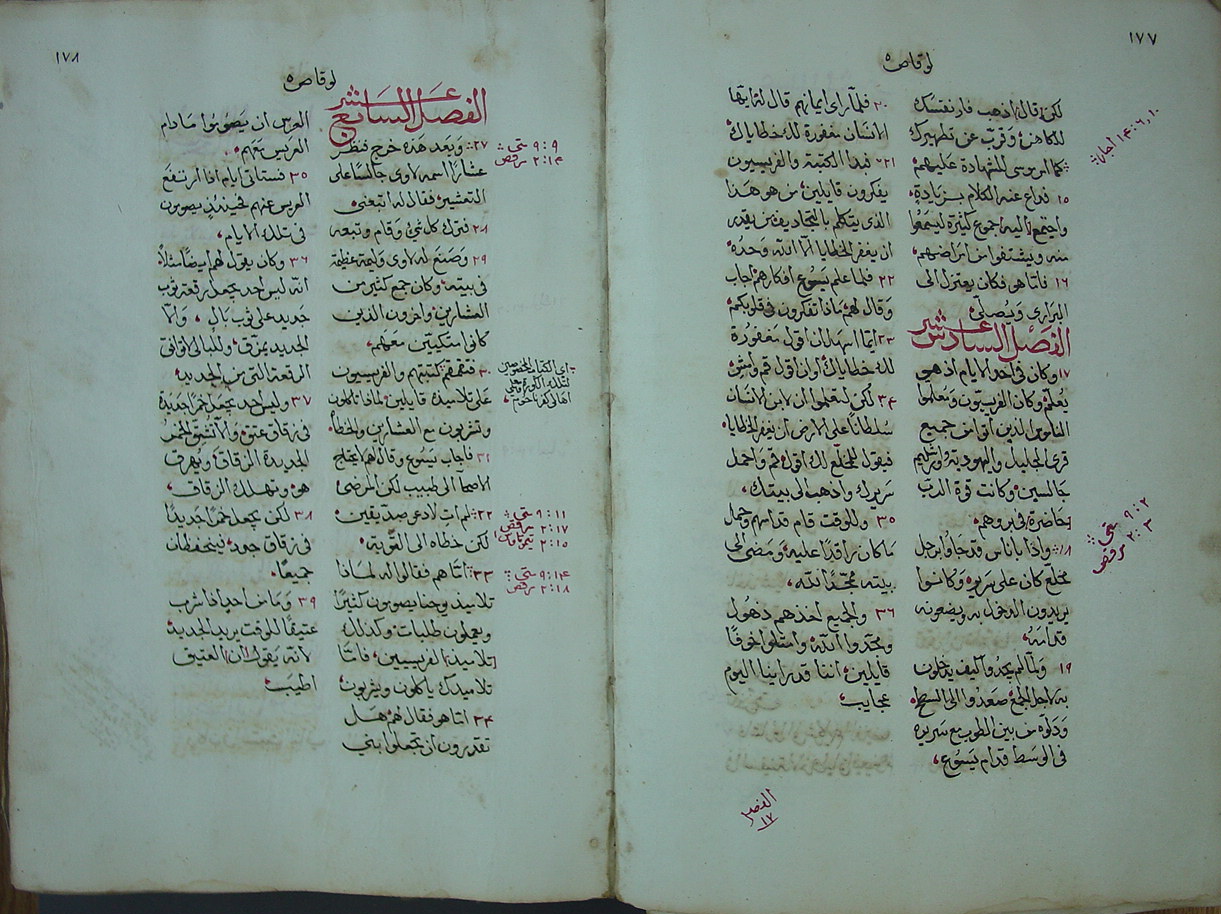 ١٧٧
لوقا ص ٥
لكن قال اذهب فار نفسك
للكاهن وقرب عن تطهيرك
كما امر موسى للشهادة عليهم
١٥ فذاع عنه الكلام بزيادة
واجتمع اليه جموع كثيرة ليسمعوا
منه ويشتفوا من امراضهم
١٦ فاما هو فكان يعتزل الى
البراري ويصلي
الفصل السادس عشر
١٧ وكان في احد الايام اذ هي
يعلم وكان الفريسيون ومعلموا
الناموس الذين اتوا من جميع
قرى الجليل واليهودية واورشليم
جالسين وكانت قوة الرب
حاضرة في بروهم
١٨ واذا باناس قد جاوا برجل
مخلع كان على سريره وكانوا
يريدون الدخول به ويضعونه
قدامه
١٩ ولما لم يجدوا كيف يدخلون
به لاجل الجمع صعدوا الى السطح
ودلوه من بين الطوب مع سريره
في الوسط قدام يسوع
٢٠ فلما راى ايمانهم قال له ايها
الانسان مغفورة لك خطاياك
٢١ فبدا الكتبة والفريسيون
يفكرون قايلين من هو هذا
الذي يتكلم بالتجاديف من يقدر
ان يغفر الخطايا الا الله وحده
٢٢ فلما علم يسوع افكارهم اجاب
وقال لهم ماذا تفكرون في قلوبكم
٢٣ ايما اسهل ان اقول مغفورة
لك خطاياك او ان اقول قم وامش
٢٤ لكن لتعلموا ان لابن الانسان
سلطانا على الارض ان يغفر الخطايا
فيقول للمخلع لك اقول قم واحمل
سريرك واذهب الى بيتك
٢٥ وللوقت قام قدامهم وحمل
ما كان راقدا عليه ومضى الى
بيته ممجدا لله
٢٦ والجميع اخذهم ذهول
ومجدوا الله وامتلوا خوفا
قايلين اننا قد راينا اليوم
عجايب
احبار ١٤: ٢،٤،١٠
٩: ٢ متى
٢: ٣ مرقص
الفصل
١٧
١٧٨
لوقا ص ٥
الفصل السابع عشر
٢٧ وبعد هذه خرج فنظر
عشارا اسمه لاوي جالسا على
التعشير فقال له اتبعني
٢٨ فترك كل شي وقام وتبعه
٢٩ وصنع له لاوي وليمة عظيمة
في بيته وكان جمع كثير من
العشارين واخرون الذين
كانوا متكيين معهم
٣٠ فتقمقم كتبتهم والفريسيون
على تلاميذه قايلين لماذا تاكلون
وتشربون مع العشارين والخطاة
٣١ فاجاب يسوع وقال لهم لا يحتاج
الاصحا الى طبيب لكن المرضى
٣٢ لم ات لادعو صديقين
لكن خطاه الى التوبة
٣٣ اما هم فقالوا له لماذا
تلاميذ يوحنا يصومون كثيرا
ويعملون طلبات وكذلك
تلاميذ الفريسيين فاما
تلاميذك ياكلون ويشربون
٣٤ اما هو فقال لهم هل
تقدرون ان تجعلوا بني
العرس ان يصوموا ما دام
العريس معهم
٣٥ فستاتي ايام اذا ارتفع
العريس عنهم فحينئذ يصومون
في تلك الايام
٣٦ وكان يقول لهم ايضا مثلا
انه ليس احد يجعل رقعة ثوب
جديد على ثوب بال والا
الجديد يمزق وللبالي لا توافق
الرقعة التي من الجديد
٣٧ وليس احد يجعل خمرا جديدة
في زقاق عتق والا تشق الخمر
الجديدة الزقاق ويهرق
هو وتهلك الزقاق
٣٨ لكن يجعل خمرا جديدا
في زقاق جدد فينحفظان
جميعا
٣٩ وما من احد اذا شرب
عتيقا للوقت يريد الجديد
لانه يقول ان العتيق
اطيب
٩: ٩ متى
٢: ١٤ مرقص
٩: ١١ متى
٢: ١٧ مرقص
٩: ١٤ متى
٢: ١٨ مرقص